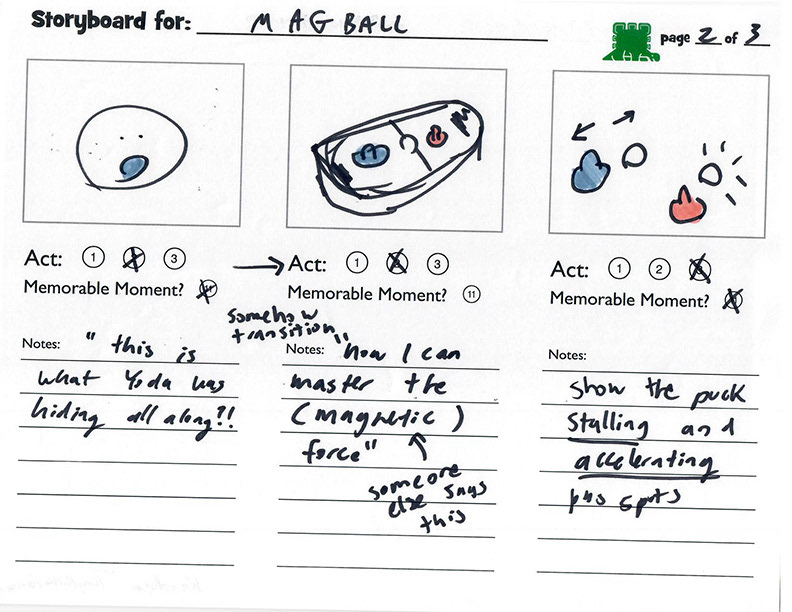 Storyboard for: MAGBALL
page 2 of 3
Act: 1 2 3
Memorable Moment? 11
Notes: " this is
what Yoda was
hiding all along?!
Act: 1 2 3
Memorable Moment? 11
somehow
transition
Notes: "Now I can
master the
(magnetic)
force"
someone
else says
this
Act: 1 2 3
Memorable Moment?
Notes:
show the puck
stalling and
accelerating